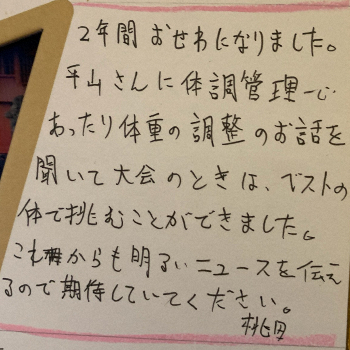 2年間おせわになりました。
平山さんに体調管理一心
あったり体重の調整のお話を
聞いて大会のときは、ベストの
体で挑むことができました。
これからも明るいニュースを伝え
るので期待していてください。
桃田